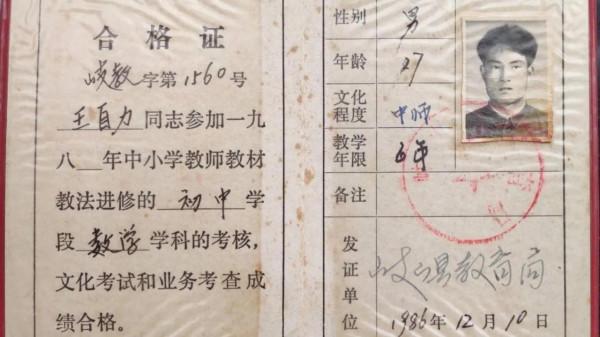 合格证
岐教字第1560号
王自力同志参加一九
八__年中小学教师教材
教法进修的 初中 学
段 数学 学科的考核,
文化考试和业务考查成
绩合格。
性别 男
年龄 27
文化程度 中师
教学年限 五年
备注
发证单位 岐山县教育局
1986年12月10日